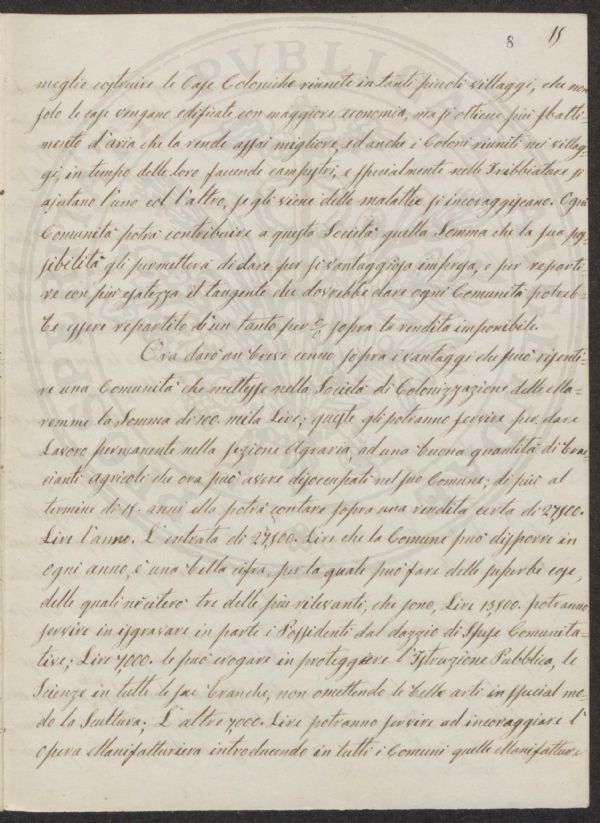 8 15
meglio costruire le Case Coloniche riunite in tanti piccoli villaggi, che non
solo le case vengano edificate con maggiore economia, ma si ottiene più sbatti-
mento d'aria che la rende assai migliore, ed anche i Coloni riuniti nei villag-
gi, in tempo delle loro faccende campestri, e specialmente nelle Trebbiature si
ajutano l'uno col l'altro, se gli viene delle malattie si incoraggiscano. Ogni
Comunità potrà contribuire a questa Società quella Somma che la sua pos-
sibilità gli permetterà di dare per sì vantaggiosa impresa, e per reparti-
re con più esatezza il tangente che dovrebbe dare ogni Comunità potreb-
be essere repartito d'un tanto per % sopra la rendita imponibile.
Ora darò un breve cenno sopra i vantaggi che può risenti-
re una Comunità che mettesse nella Società di Colonizzazione delle Ma-
remme la Somma di 100. mila Lire; queste gli potranno servire per dare
Lavoro permanente nella sezione Agraria, ad una buona quantità di brac-
cianti agricoli che ora può avere disoccupati nel suo Comune; di più al
termine di 15. anni ella potrà contare sopra una rendita certa di 27,500.
Lire l'anno. L'entrata di 27,500. Lire che la Comune può disporre in
ogni anno, è una bella cifra, per la quale può fare delle superbe cose,
delle quali ne citerò tre delle più rilevanti, che sono, Lire 13,500. potranno
servire in isgravare in parte i Possidenti dal dazzio di Spese Comunita-
tive; Lire 7,000. le può erogare in proteggere l'Istruzione Pubblica, le
Scienze in tutte le sue branche, non omettendo le belle arti in special mo-
do la Scultura; L'altre 7,000. Lire potranno servire ad incoraggiare l'
opera Manifatturiera introducendo in tutti i Comuni quelle Manifatture